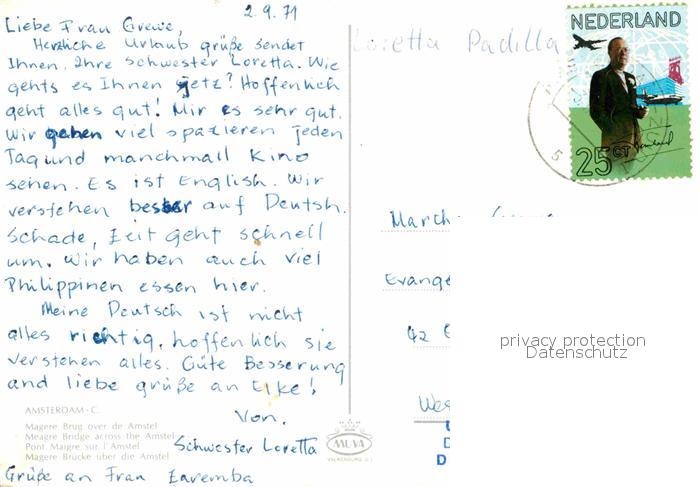 2.9.71
Liebe Frau Grewe,
Herzliche Urlaub grüße sendet
Ihnen, Ihre Schwester Loretta. Wie
gehts es Ihnen jetz? Hoffenlich
geht alles gut! Mir es sehr gut.
Wir gehen viel spazieren jeden
Tag und manchmall Kino
sehen. Es ist English. Wir
verstehen besser auf Deutsh.
Schade, Zeit geht schnell
um. Wir haben auch viel
Philippinen essen hier.
Meine Deutsch ist nicht
alles richtig, hoffenlich sie
verstehen alles. Gute Besserung
and liebe grüße an Elke!
Von.
Schwester Loretta
Grüße an Frau Zaremba
AMSTERDAM-C.
Magere Brug over de Amstel
Meagre Bridge across the Amstel
Pont Maigre sur l'Amstel
Magere Brücke über die Amstel
MUVA
VALKENBURG
Loretta Padilla
NEDERLAND
25 CT
5
March
Evange
42
Wes
D
privacy protection
Datenschutz